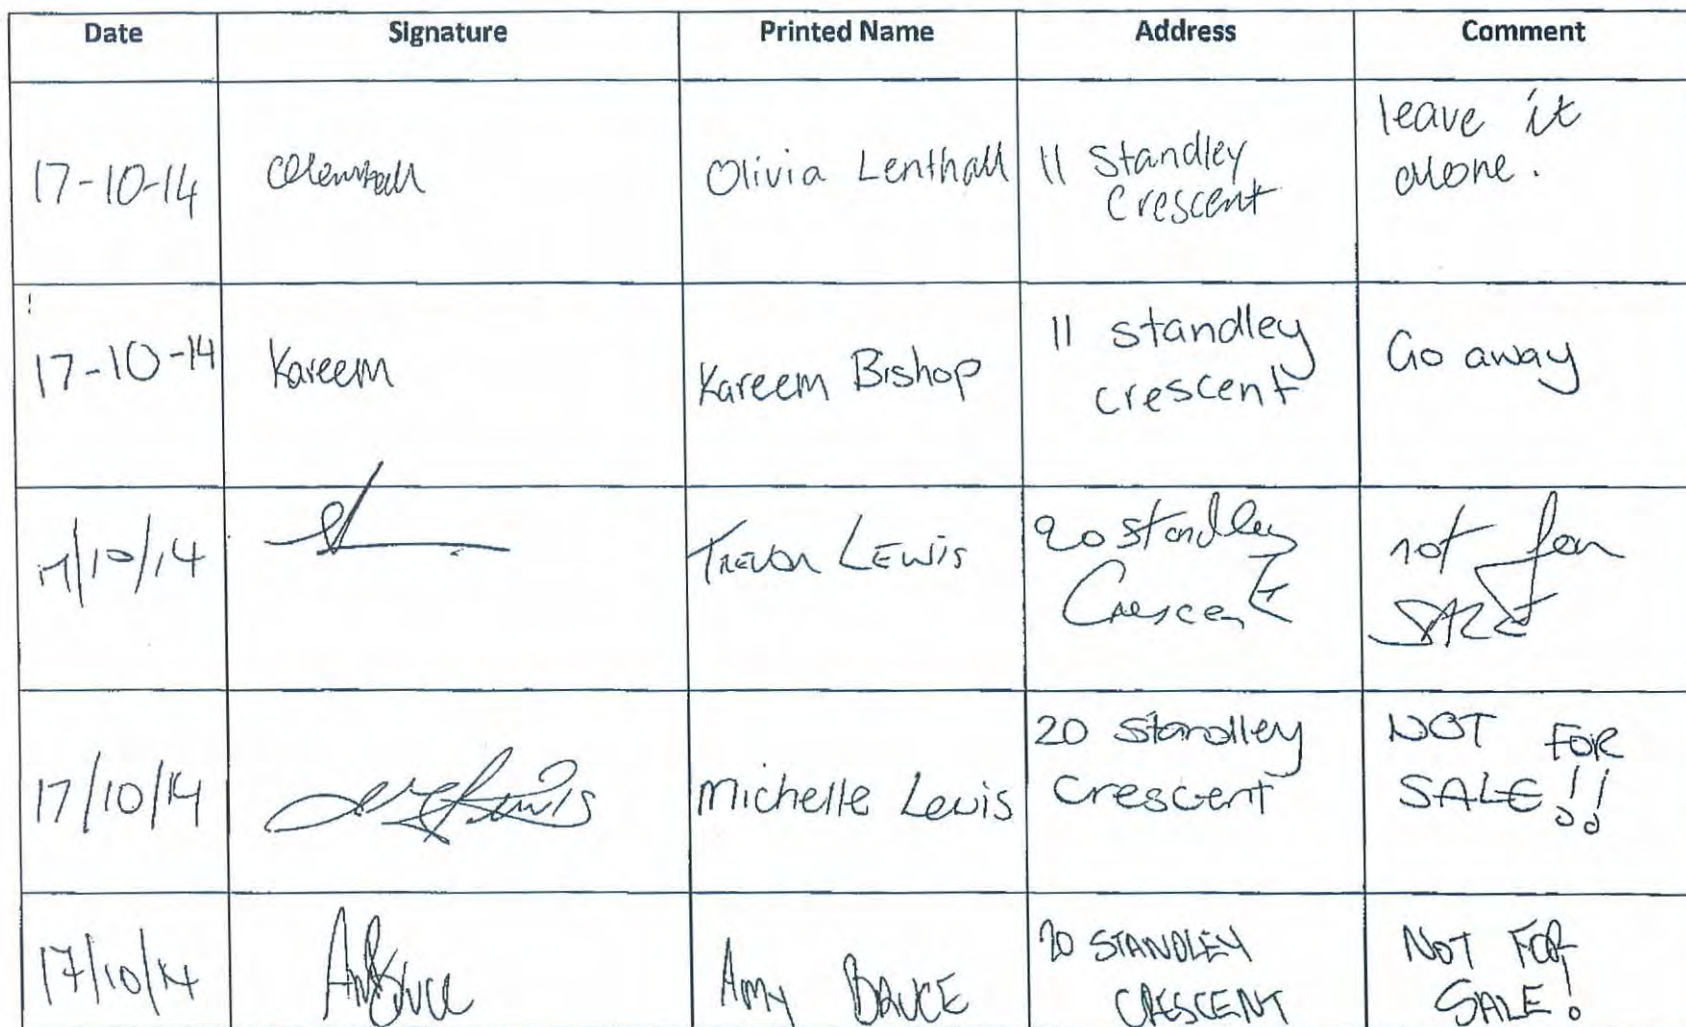 Date Signature Printed Name Address Comment
17-10-14 Olivia Lenthall 11 Standley
Crescent
leave it
alone.
17-10-14 Kareem Kareem Bishop 11 standley
crescent
Go away
17/10/14 Trevor LEWIS 20 standley
Crescent
not for
SALE
17/10/14 Michelle Lewis 20 Standley
Crescent
NOT FOR
SALE!!
17/10/14 AMBruce Amy BRUCE 20 STANDLEY
CRESCENT
NOT FOR
SALE!